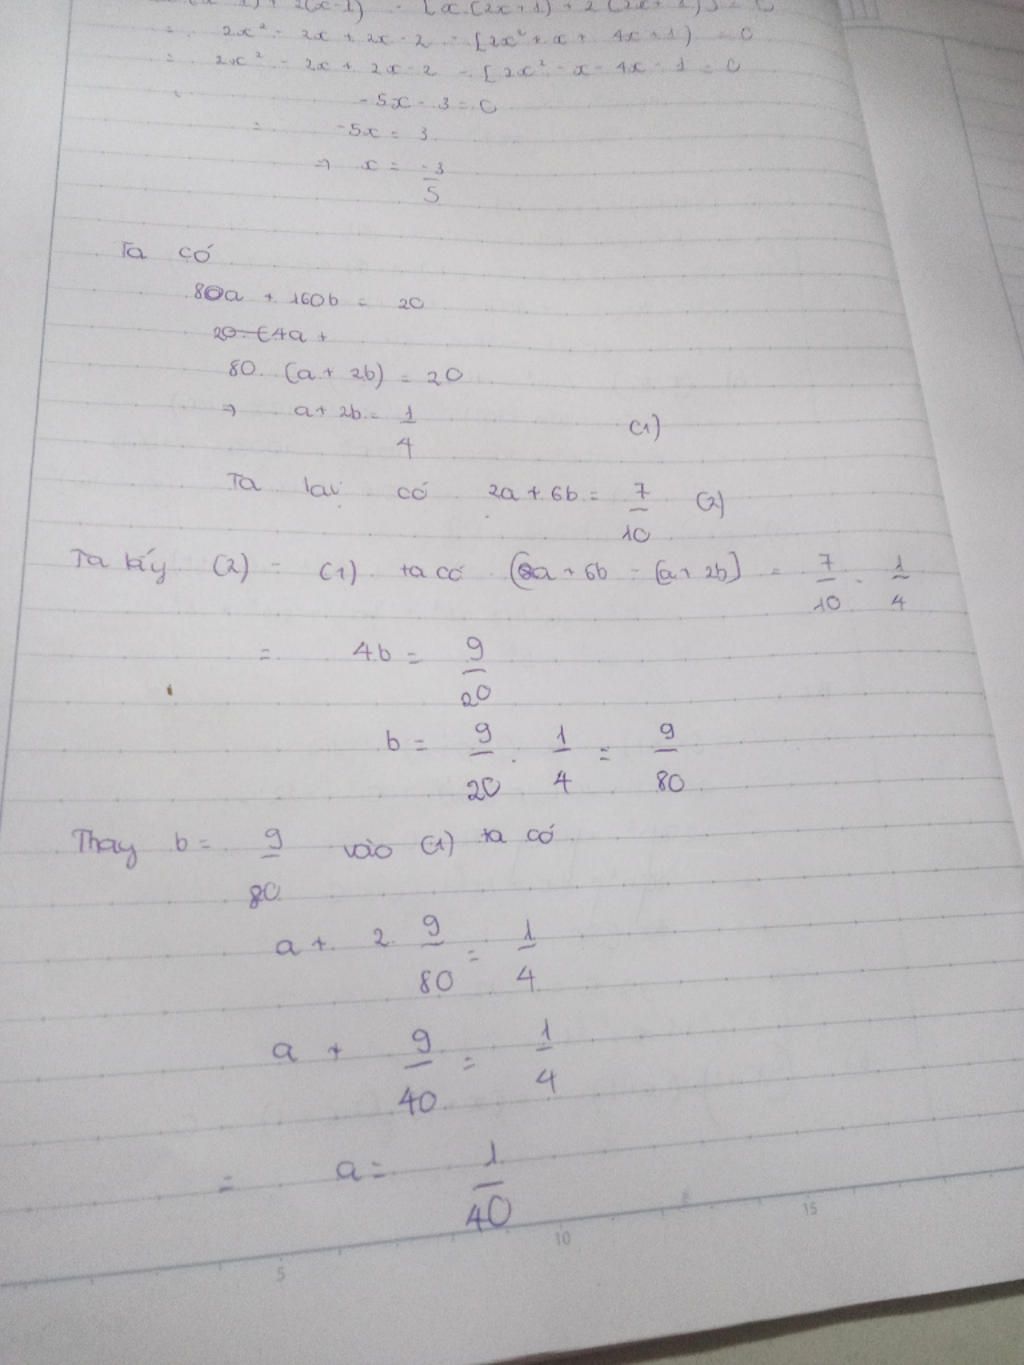 2(x-1) - [x.(2x+1) + 2
= 2x² - 2x + 2x - 2 - [2x² + x + 4x + 1) = 0
= 2x² - 2x + 2x - 2 - [2x² - x - 4x - 1 = 0
-5x - 3 = 0
= -5x = 3
⇒ x = -3/5
Ta có
80a + 160b = 20
20.(4a +
80.(a + 2b) = 20
⇒ a + 2b = 1/4 (1)
Ta lại có 2a + 6b = 7/10 (2)
Ta lấy (2) - (1) ta có (2a + 6b - (a + 2b) = 7/10 - 1/4
= 4b = 9/20
b = 9/20 . 1/4 = 9/80
Thay b = 9/80 vào (1) ta có
a + 2. 9/80 = 1/4
a + 9/40 = 1/4
= a = 1/40
5 10 15